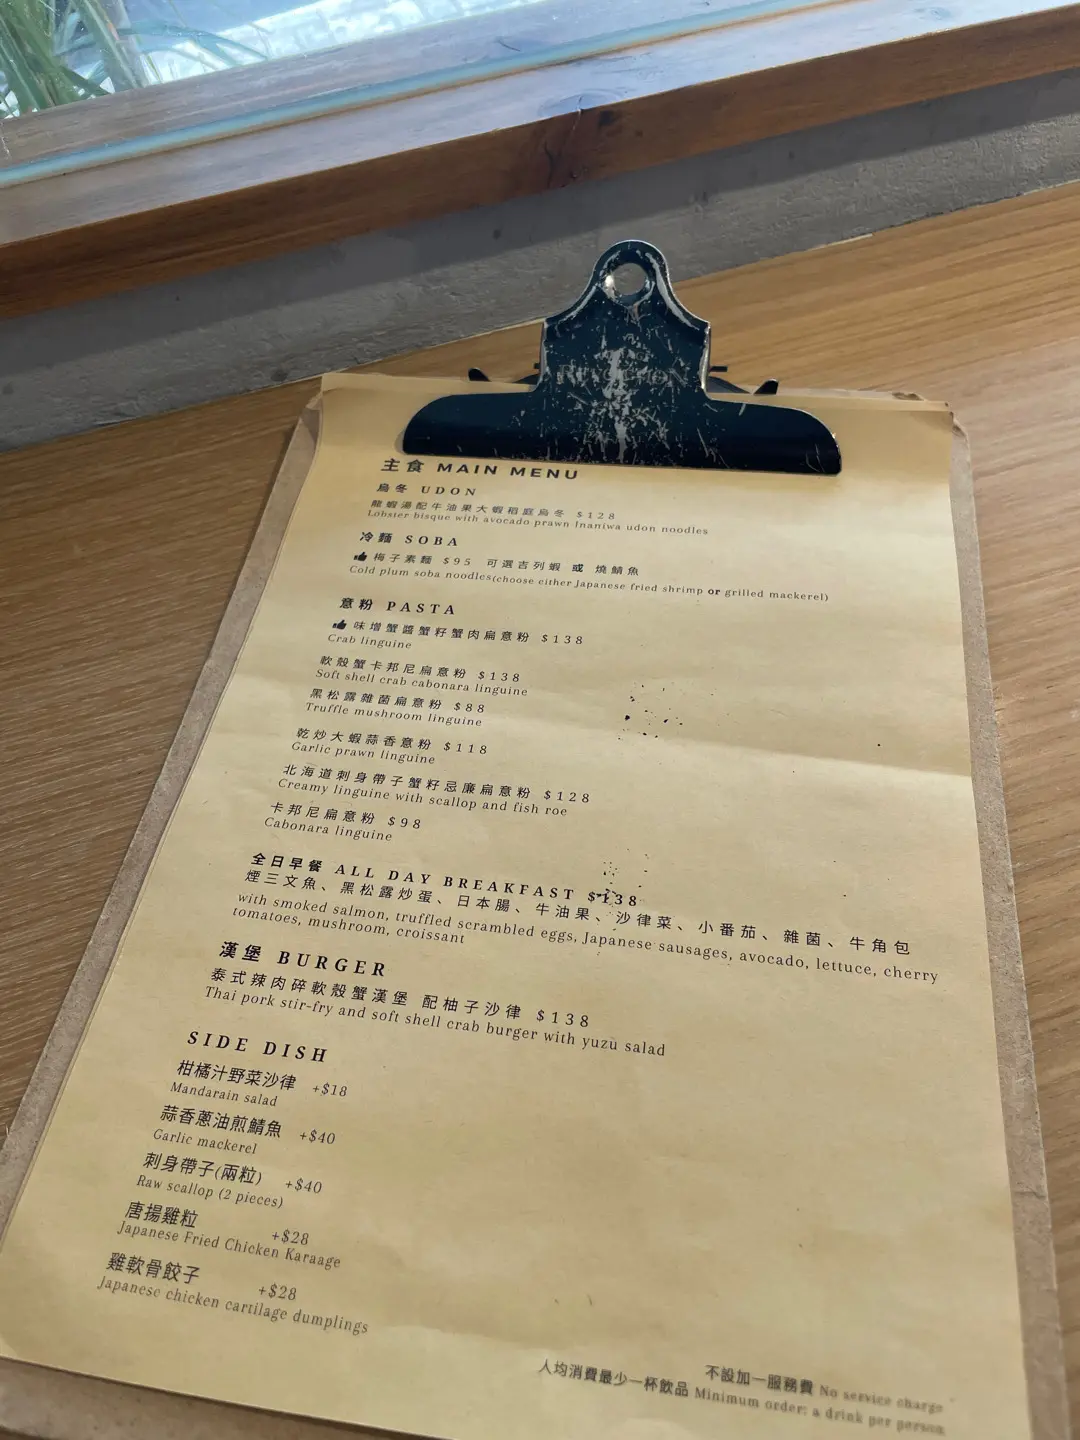 主食 MAIN MENU
烏冬 UDON
龍蝦湯配牛油果大蝦稻庭烏冬 $128
Lobster bisque with avocado prawn Inaniwa udon noodles
冷麵 SOBA
梅子素麵 $95 可選吉列蝦 或 燒鯖魚
Cold plum soba noodles(choose either Japanese fried shrimp or grilled mackerel)
意粉 PASTA
味增蟹醬蟹籽蟹肉扁意粉 $138
Crab linguine
軟殼蟹卡邦尼扁意粉 $138
Soft shell crab cabonara linguine
黑松露雜菌扁意粉 $88
Truffle mushroom linguine
乾炒大蝦蒜香意粉 $118
Garlic prawn linguine
北海道刺身帶子蟹籽忌廉扁意粉 $128
Creamy linguine with scallop and fish roe
卡邦尼扁意粉 $98
Cabonara linguine
全日早餐 ALL DAY BREAKFAST $138
煙三文魚、黑松露炒蛋、日本腸、牛油果、沙律菜、小番茄、雜菌、牛角包
with smoked salmon, truffled scrambled eggs, Japanese sausages, avocado, lettuce, cherry
tomatoes, mushroom, croissant
漢堡 BURGER
泰式辣肉碎軟殼蟹漢堡 配柚子沙律 $138
Thai pork stir-fry and soft shell crab burger with yuzu salad
SIDE DISH
柑橘汁野菜沙律 +$18
Mandarain salad
蒜香蔥油煎鯖魚 +$40
Garlic mackerel
刺身帶子(兩粒) +$40
Raw scallop (2 pieces)
唐揚雞粒 +$28
Japanese Fried Chicken Karaage
雞軟骨餃子 +$28
Japanese chicken cartilage dumplings
不設加一服務費 No service charge
人均消費最少一杯飲品 Minimum order: a drink per person